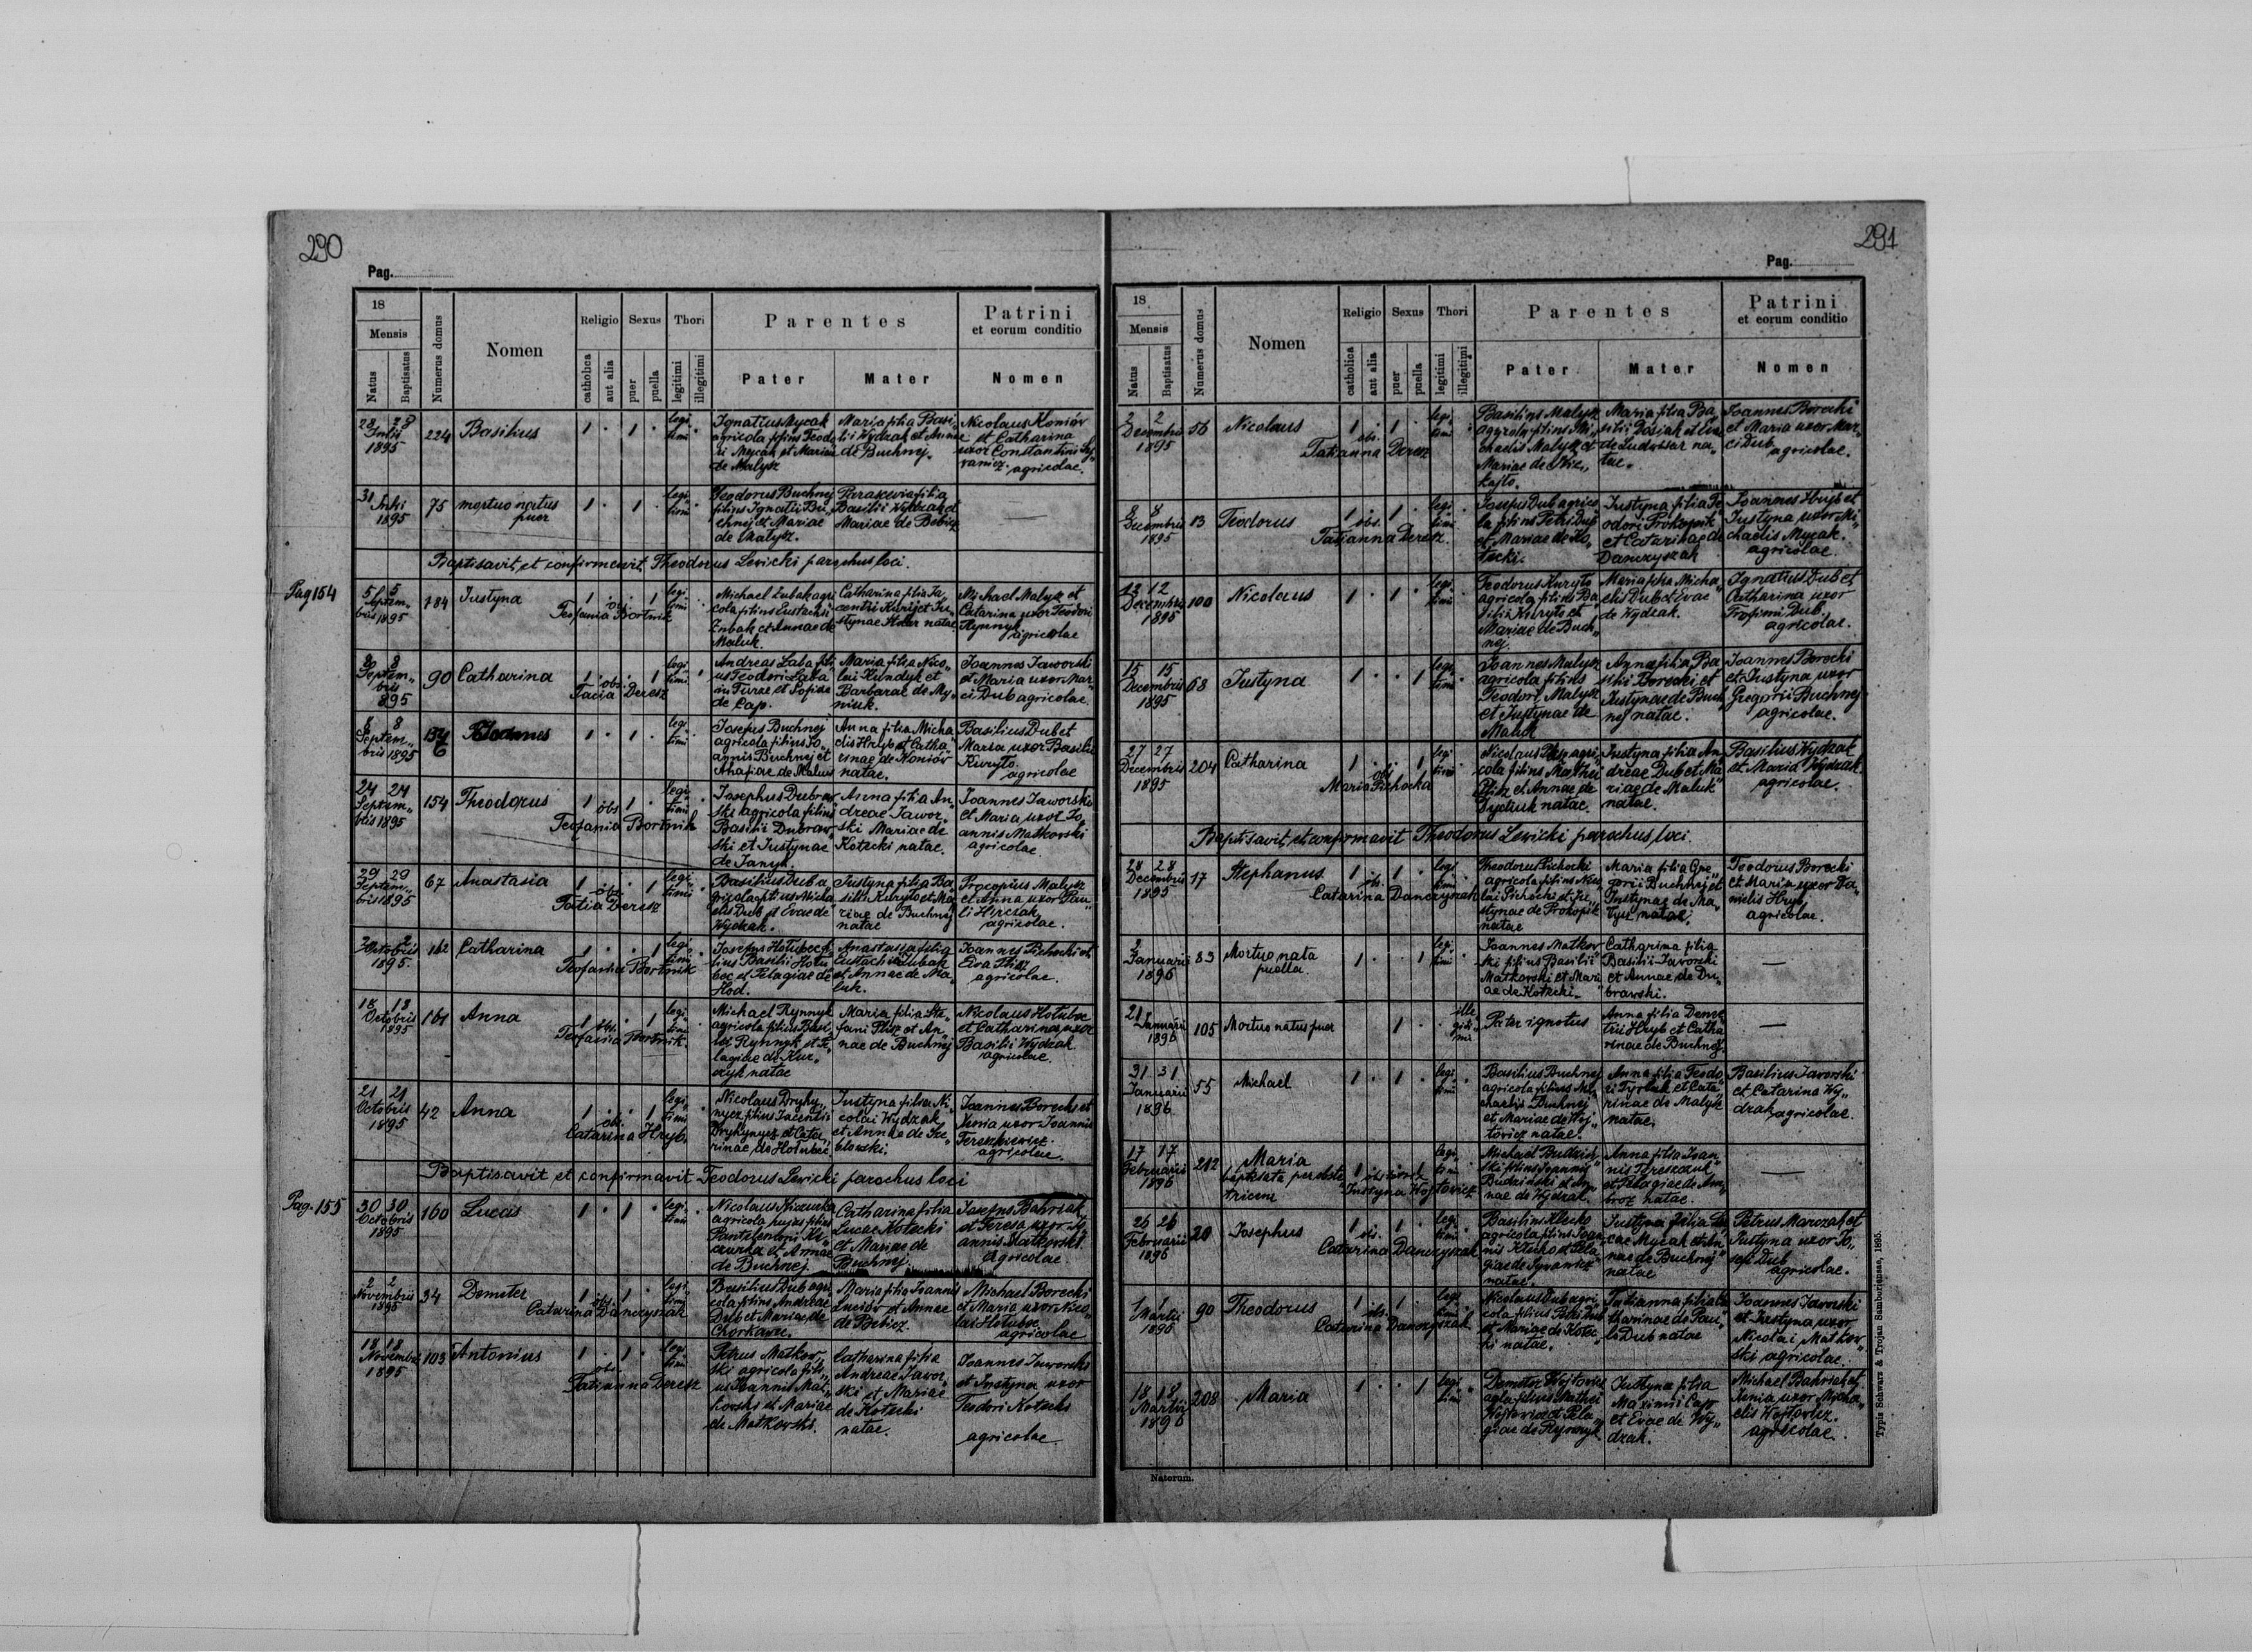 290
Pag.
18
Mensis
Natus
Baptisatus
Numerus domus
Nomen
Religio
catholica
aut alia
Sexus
puer
puella
Thori
legitimi
illegitimi
Parentes
Pater
Mater
Patrini
et eorum conditio
Nomen
28 28
Julii
1895
224
Basilius
1 . 1 .
legi
timi
Ignatius Mycak
agricola filius Teodo
ri Mycak et Mariae
de Malysz
Maria filia Basi
lii Wydzak et Annae
de Buchnej.
Nicolaus Koniów
et Catharina
uxor Constantini
agricolae.
31
Julii
1895
75
mortuo natus
puer
1 . 1 .
legi
timi
Teodorus Buchnej
filius Ignatii Bu
chnej et Mariae
de Malysz.
Parascevia filia
Basilii Wydzak et
Mariae de Bebicz
Baptisavit et confirmavit Theodorus Lewicki parochus loci.
Pag 154
5 5
Septem
bris 1895
184
Justyna
1 . . 1
obs.
Teofania Bortnik
legi
timi
Michael Zubak agri
cola filius Eustachii
Zubak et Annae de
Maluk.
Catharina filia Ja
centii Kurij et Ju
stynae natae
Michael Malysz et
Catarina uxor Teodori
Rynnyk
agricolae
8 8
Septem
bris
1895
90
Catharina
1 . . 1
obs.
Tacia Deresz
legi
timi
Andreas Laba fili
us Teodori Laba
in Turze et Sofiae
de Cap.
Maria filia Nico
lai Kundyk et
Barbarae de My
niuk.
Joannes Jaworski
et Maria uxor Mar
ci Dub agricolae.
8 8
Septem
bris 1895
1 . 1 .
legi
timi
Josepus Buchnej
agricola filius Jo
annis Buchnej et
de Maluk
Anna filia Micha
elis Hryb et Catha
rinae de Koniów
natae.
Basilius Dub et
Maria uxor Basilii
Kuryto.
agricolae
24 24
Septem
bris 1895
154
Theodorus
1 . 1 .
obs
Teofania Bortnik
legi
timi
Josephus Dubraw
ski agricola filius
Basilii Dubraw
ski et Justynae
de Janyk.
Anna filia An
dreae Jawor
ski Mariae de
Kotecki natae.
Joannes Jaworski
et Maria uxor Jo
annis Matkowski
agricolae.
29 29
Septem
bris 1895
67
Anastasia
1 . . 1
obs.
Tatia Deresz
legi
timi
Basilius Dub a
gricola filius Micha
elis Dub et Evae de
Wydzak.
Justyna filia Ba
silii Kuryto et Ma
riae de Buchnej
natae
Procopius Malysz
et Anna uxor Pau
li Hirczak
agricolae.
2 2
Octobris
1895.
162
Catharina
1 . . 1
Teofania Bortnik
legi
timi
Josephus Hotubec fi
lius Basilii Hotu
bec et Pelagiae de
Hod.
Anastasia filia
Eustachii Zubak
et Annae de Ma
luk.
Joannes Pichocki et
Eva
agricolae.
18 18
Octobris
1895
161
Anna
1 . . 1
obs.
Teofania Bortnik.
legi
timi
Michael Rynnyk
agricola filius Basi
lii Rynnyk et Pe
lagiae de Kur
natae
Maria filia Ste
fani Plisz et An
nae de Buchnej
Nicolaus Hotubec
et Catharina uxor
Basilii Wydzak.
agricolae
21 21
Octobris
1895
42
Anna
1 . . 1
obs.
Catarina Hryb.
legi
timi
Nicolaus Dryhy
nycz filius Jacentii
Dryhynycz et Cata
rinae de Hotubec
Justyna filia Ni
colai Wydzak
et Annae de
Joannes Borecki et
Xenia uxor Joannis
Tereszkiewicz.
agricolae.
Baptisavit et confirmavit Teodorus Lewicki parochus loci
Pag. 155
30 30
Octobris
1895
160
Lucas
1 . 1 .
legi
timi
Nicolaus
agricola filius
Pantelemoni
et Annae
de Buchnej
Catharina filia
Lucae Kotecki
et Mariae de
Buchnej.
Josephus Bahriak
et Teresa uxor Jo
annis Matkowski.
agricolae.
2 2
Novembris
1895
34
Demeter
1 . 1 .
obs
Catarina Danczyszak
legi
timi
Basilius Dub agri
cola filius Andreae
Dub et Mariae de
Chorkavec.
Maria filia Joannis
Luciów et Annae
de Bebicz.
Michael Borecki
et Maria uxor Nico
lai Hotubec
agricolae
18 18
Novembris
1895
103
Antonius
1 . 1 .
obs.
Tatianna Deresz
legi
timi
Petrus Matkow
ski agricola fili
us Joannis Mat
kowski et Mariae
de Matkowski.
Catharina filia
Andreae Jawor
ski et Mariae
de Kotecki
natae.
Joannes Jaworski
et Justyna uxor
Teodori Kotecki
agricolae
291
Pag.
18
Mensis
Natus
Baptisatus
Numerus domus
Nomen
Religio
catholica
aut alia
Sexus
puer
puella
Thori
legitimi
illegitimi
Parentes
Pater
Mater
Patrini
et eorum conditio
Nomen
2 2
Decembris
1895
56
Nicolaus
1 . 1 .
obs.
Tatianna Deresz
legi
timi
Basilius Malysz
agricola filius Mi
chaelis Malysz et
Mariae de
Maria filia Ba
silii Dosiak et Evae
de na
tae.
Joannes Borecki
et Maria uxor Mar
ci Dub
agricolae.
8 8
Decembris
1895
13
Teodorus
1 . 1 .
obs.
Tatianna Deresz.
legi
timi
Josepus Dub agrico
la filius Petri Dub
et Mariae de Ko
tecki.
Justyna filia Te
odori Prokopik
et Catarinae de
Danczyszak
Joannes Hryb et
Justyna uxor Mi
chaelis Mycak.
agricolae.
12 12
Decembris
1895
100
Nicolaus
1 . 1 .
legi
timi
Teodorus Kuryto
agricola filius Ba
silii Kuryto et
Mariae de Buch
nej.
Maria filia Micha
elis Dub et Evae
de Wydzak.
Ignatius Dub et
Catharina uxor
Trofimi Dub.
agricolae.
15 15
Decembris
1895
68
Justyna
1 . . 1
legi
timi
Joannes Malysz
agricola filius
Teodori Malysz
et Justynae de
Maluk
Anna filia Ba
silii Borecki et
Justynae de Buch
nej natae.
Joannes Borecki
et Justyna uxor
Gregorii Buchnej
agricolae.
27 27
Decembris
1895
204
Catharina
1 . . 1
obs
Maria Pichocka
legi
timi
Nicolaus Plisz agri
cola filius Mathei
Plisz et Annae de
Dyduk natae.
Justyna filia An
dreae Dub et Ma
riae de Maluk
natae.
Basilius Wydzak
et Maria Wydzak
agricolae.
Baptisavit et confirmavit Theodorus Lewicki parochus loci.
28 28
Decembris
1895
17
Stephanus
1 . 1 .
obs.
Catarina Danczyszak
legi
timi
Theodorus Pichocki
agricola filius Nico
lai Pichocki et Ju
stynae de Prokopik
natae
Maria filia Gre
gorii Buchnej et
Justynae de Ma
lysz natae.
Teodorus Borecki
et Maria uxor Da
nielis Hryb,
agricolae.
2
Januarii
1896
83
Mortuo nata
puella.
1 . . 1
legi
timi
Joannes Matkow
ski filius Basilii
Matkowski et Mari
ae de Kotecki.
Catharina filia
Basilii Jaworski
et Annae de Du
brawski.
21
Januarii
1896
105
Mortuo natus puer
1 .
ille
giti
mi
Pater ignotus
Anna filia Deme
trii Hryb et Catha
rinae de Buchnej.
31 31
Januarii
1896
55
Michael
1 . 1 .
legi
timi
Basilius Buchnej
agricola filius Mi
chaelis Buchnej
et Mariae de Woj
towicz natae.
Anna filia Teodo
ri et Cata
rinae de Malysz
natae.
Basilius Jaworski
et Catarina Wy
dzak agricolae.
17 17
Februarii
1896
212
Maria
baptisata per obste
tricem
Justyna Wojtowicz
legi
timi
Michael Budzin
ski filius Joannis
Budzinski et An
nae de Wydzak.
Anna filia Joan
nis Tereszczuk
et Pelagiae de Am
broz natae.
26 26
Februarii
1896
20
Josephus
1 . 1 .
obs.
Catarina Danczyszak
legi
timi
Basilius Klecko
agricola filius Joan
nis Klecko et Pela
giae de
natae.
Justyna filia Lu
cae Mycak et An
nae de Buchnej
natae
Petrus Marczak et
Justyna uxor Jo
sefi Dub
agricolae.
1 1
Martii
1896
90
Theodorus
1 . 1 .
obs.
Catarina Danczyszak
legi
timi
Nicolaus Dub agri
cola filius Basilii
et Mariae de Kotec
ki natae.
Tatianna filia Ca
tharinae de Pau
li Dub natae
Joannes Jaworski
et Justyna uxor
Nicolai Matkow
ski agricolae.
18 18
Martii
1896
208
Maria
1 . . 1
legi
timi
Demeter Wojtowicz
agricola filius Mathei
Wojtowicz et Pela
giae de Rynnyk.
Justyna filia
Maximi Cap
et Evae de Wy
dzak.
Michael Bahriak et
Xenia uxor Micha
elis Wojtowicz.
agricolae.
Natorum.
Typis Schwarz & Trojan Samborienses, 1895.